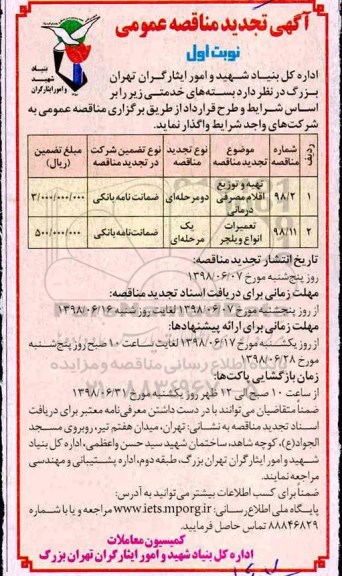 آگهی تجدید مناقصه عمومی
نوبت اول
بنیاد شهید و امور ایثارگران
اداره کل بنیاد شهید و امور ایثارگران تهران
بزرگ در نظر دارد بسته‌های خدمتی زیر را بر
اساس شرایط و طرح قرارداد از طریق برگزاری مناقصه عمومی به
شرکت‌های واجد شرایط واگذار نماید.
ردیف | شماره مناقصه | موضوع تجدید مناقصه | نوع تجدید مناقصه | نوع تضمین شرکت در تجدید مناقصه | مبلغ تضمین (ریال)
۱ | ۹۸/۲ | تهیه و توزیع اقلام مصرفی درمانی | دو مرحله‌ای | ضمانت نامه بانکی | ۳/۰۰۰/۰۰۰/۰۰۰
۲ | ۹۸/۱۱ | تعمیرات انواع ویلچر | یک مرحله‌ای | ضمانت‌نامه بانکی | ۵۰۰/۰۰۰/۰۰۰
تاریخ انتشار تجدید مناقصه:
روز پنج‌شنبه مورخ ۱۳۹۸/۰۶/۰۷
مهلت زمانی برای دریافت اسناد تجدید مناقصه:
از روز پنجشنبه مورخ ۱۳۹۸/۰۶/۰۷ لغایت روز شنبه ۱۳۹۸/۰۶/۱۶
مهلت زمانی برای ارائه پیشنهادها:
از روز یکشنبه مورخ ۱۳۹۸/۰۶/۱۷ لغایت ساعت ۱۰ صبح روز پنج‌شنبه
مورخ ۱۳۹۸/۰۶/۲۸
زمان بازگشایی پاکت‌ها:
از ساعت ۱۰ صبح الی ۱۲ ظهر روز یکشنبه مورخ ۱۳۹۸/۰۶/۳۱
ضمناً متقاضیان می‌توانند با در دست داشتن معرفی‌نامه معتبر برای دریافت
اسناد تجدید مناقصه به نشانی: تهران، میدان هفتم تیر، روبروی مسجد
الجواد(ع)، کوچه شاهد، ساختمان شهید سید حسن واعظمی، اداره کل بنیاد
شهید و امور ایثارگران تهران بزرگ، طبقه دوم، اداره پشتیبانی و مهندسی
مراجعه نمایند.
ضمناً برای کسب اطلاعات بیشتر می‌توانید به آدرس:
پایگاه ملی اطلاع رسانی: www.iets.mporg.ir مراجعه و یا با شماره
۸۸۸۴۶۸۲۹ تماس حاصل فرمایید.
کمیسیون معاملات
اداره کل بنیاد شهید و امور ایثارگران تهران بزرگ